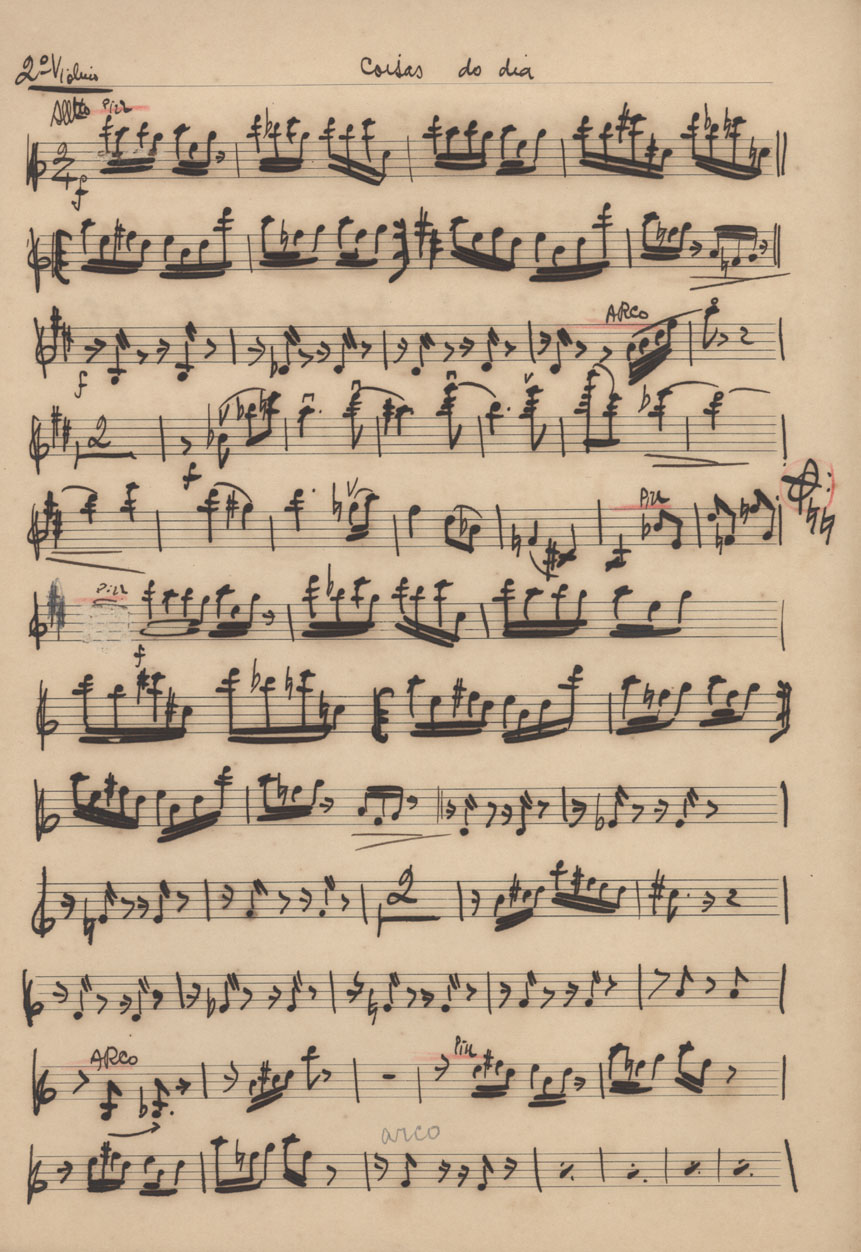 2º Violino
Coisas do dia
Alltto Pizz
2/4
f
ARCO
f
2
f
Pizz
Pizz
f
2
ARCO
Pizz
arco